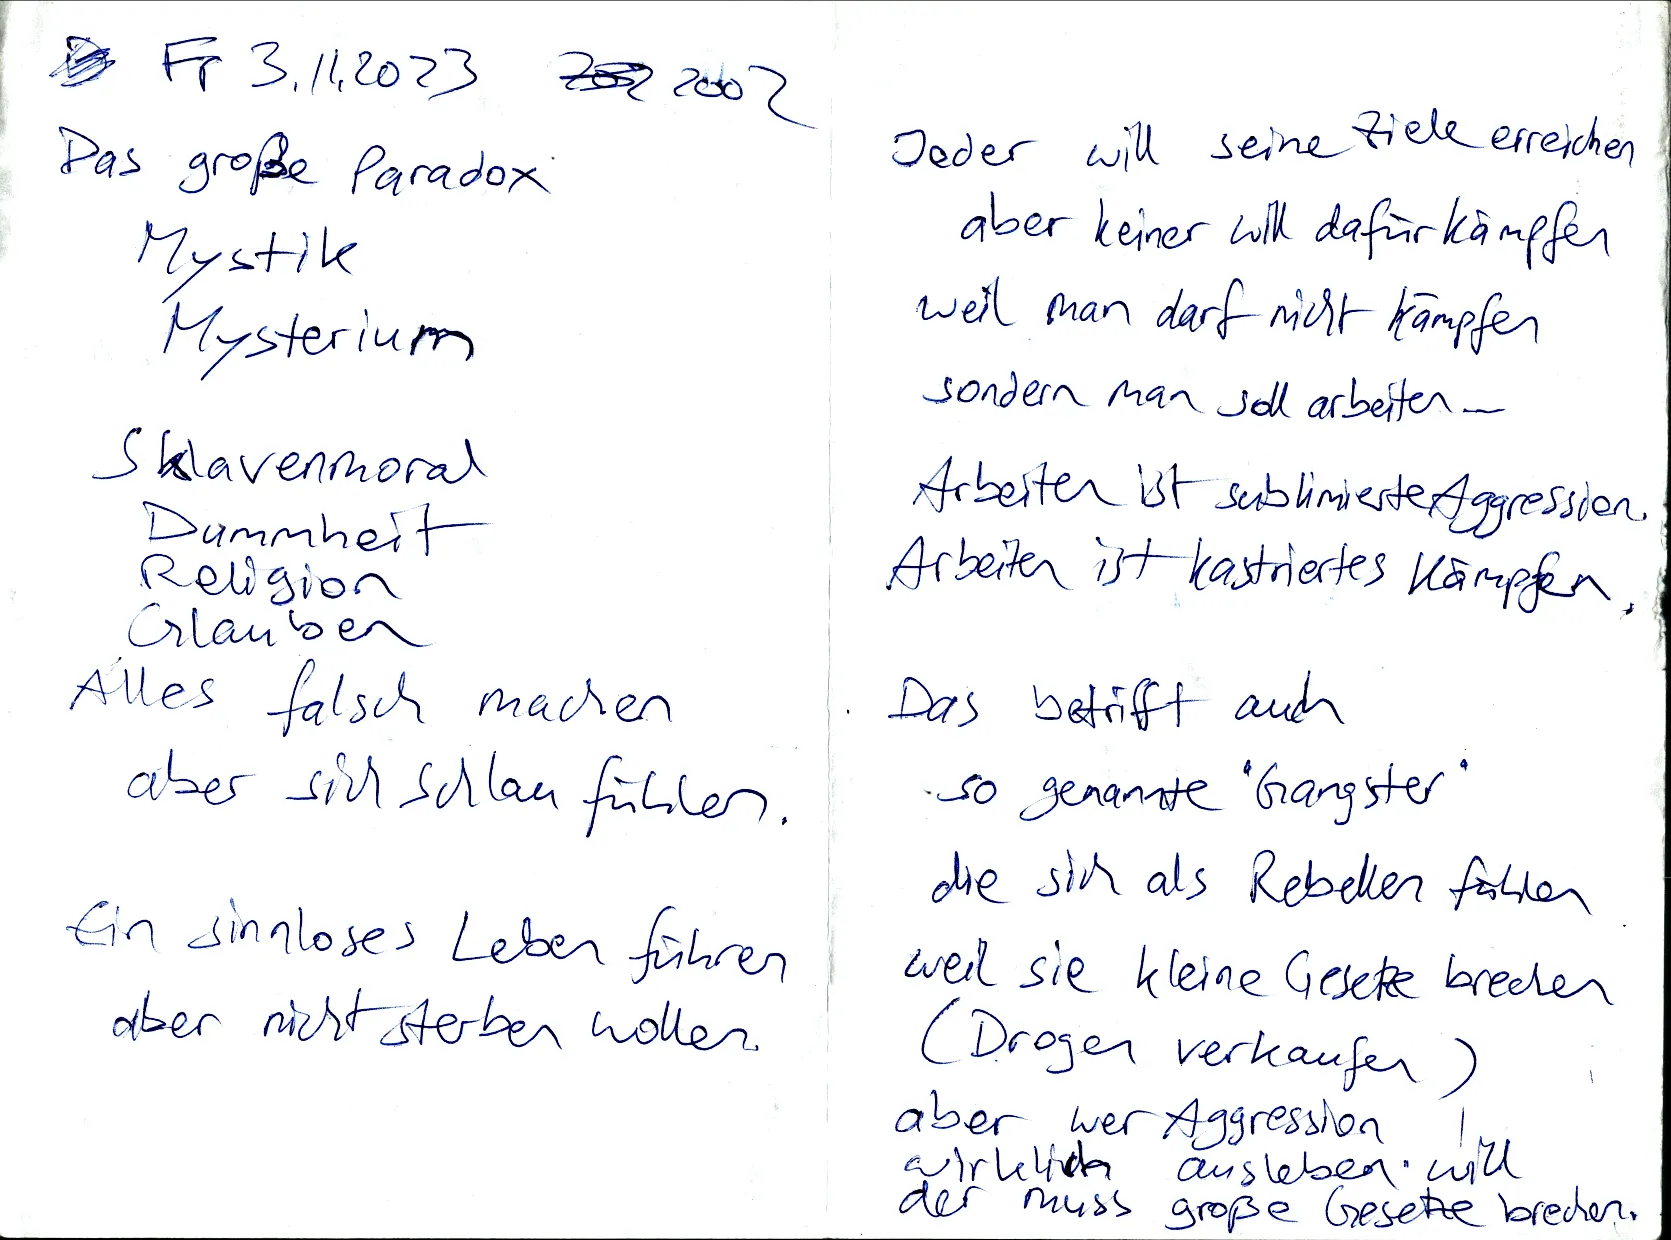 Fr 3.11.2023 2002
Das große Paradox
Mystik
Mysterium
Sklavenmoral
Dummheit
Religion
Glauben
Alles falsch machen
aber sich schlau fühlen.
Ein sinnloses Leben führen
aber nicht sterben wollen.
Jeder will seine Ziele erreichen
aber keiner will dafür kämpfen
weil man darf nicht kämpfen
sondern man soll arbeiten —
Arbeiten ist sublimierte Aggression.
Arbeiten ist kastriertes Kämpfen.
Das betrifft auch
so genannte "Gangster"
die sich als Rebellen fühlen
weil sie kleine Gesetze brechen
(Drogen verkaufen)
aber wer Aggression
wirklich ausleben will
der muss große Gesetze brechen.